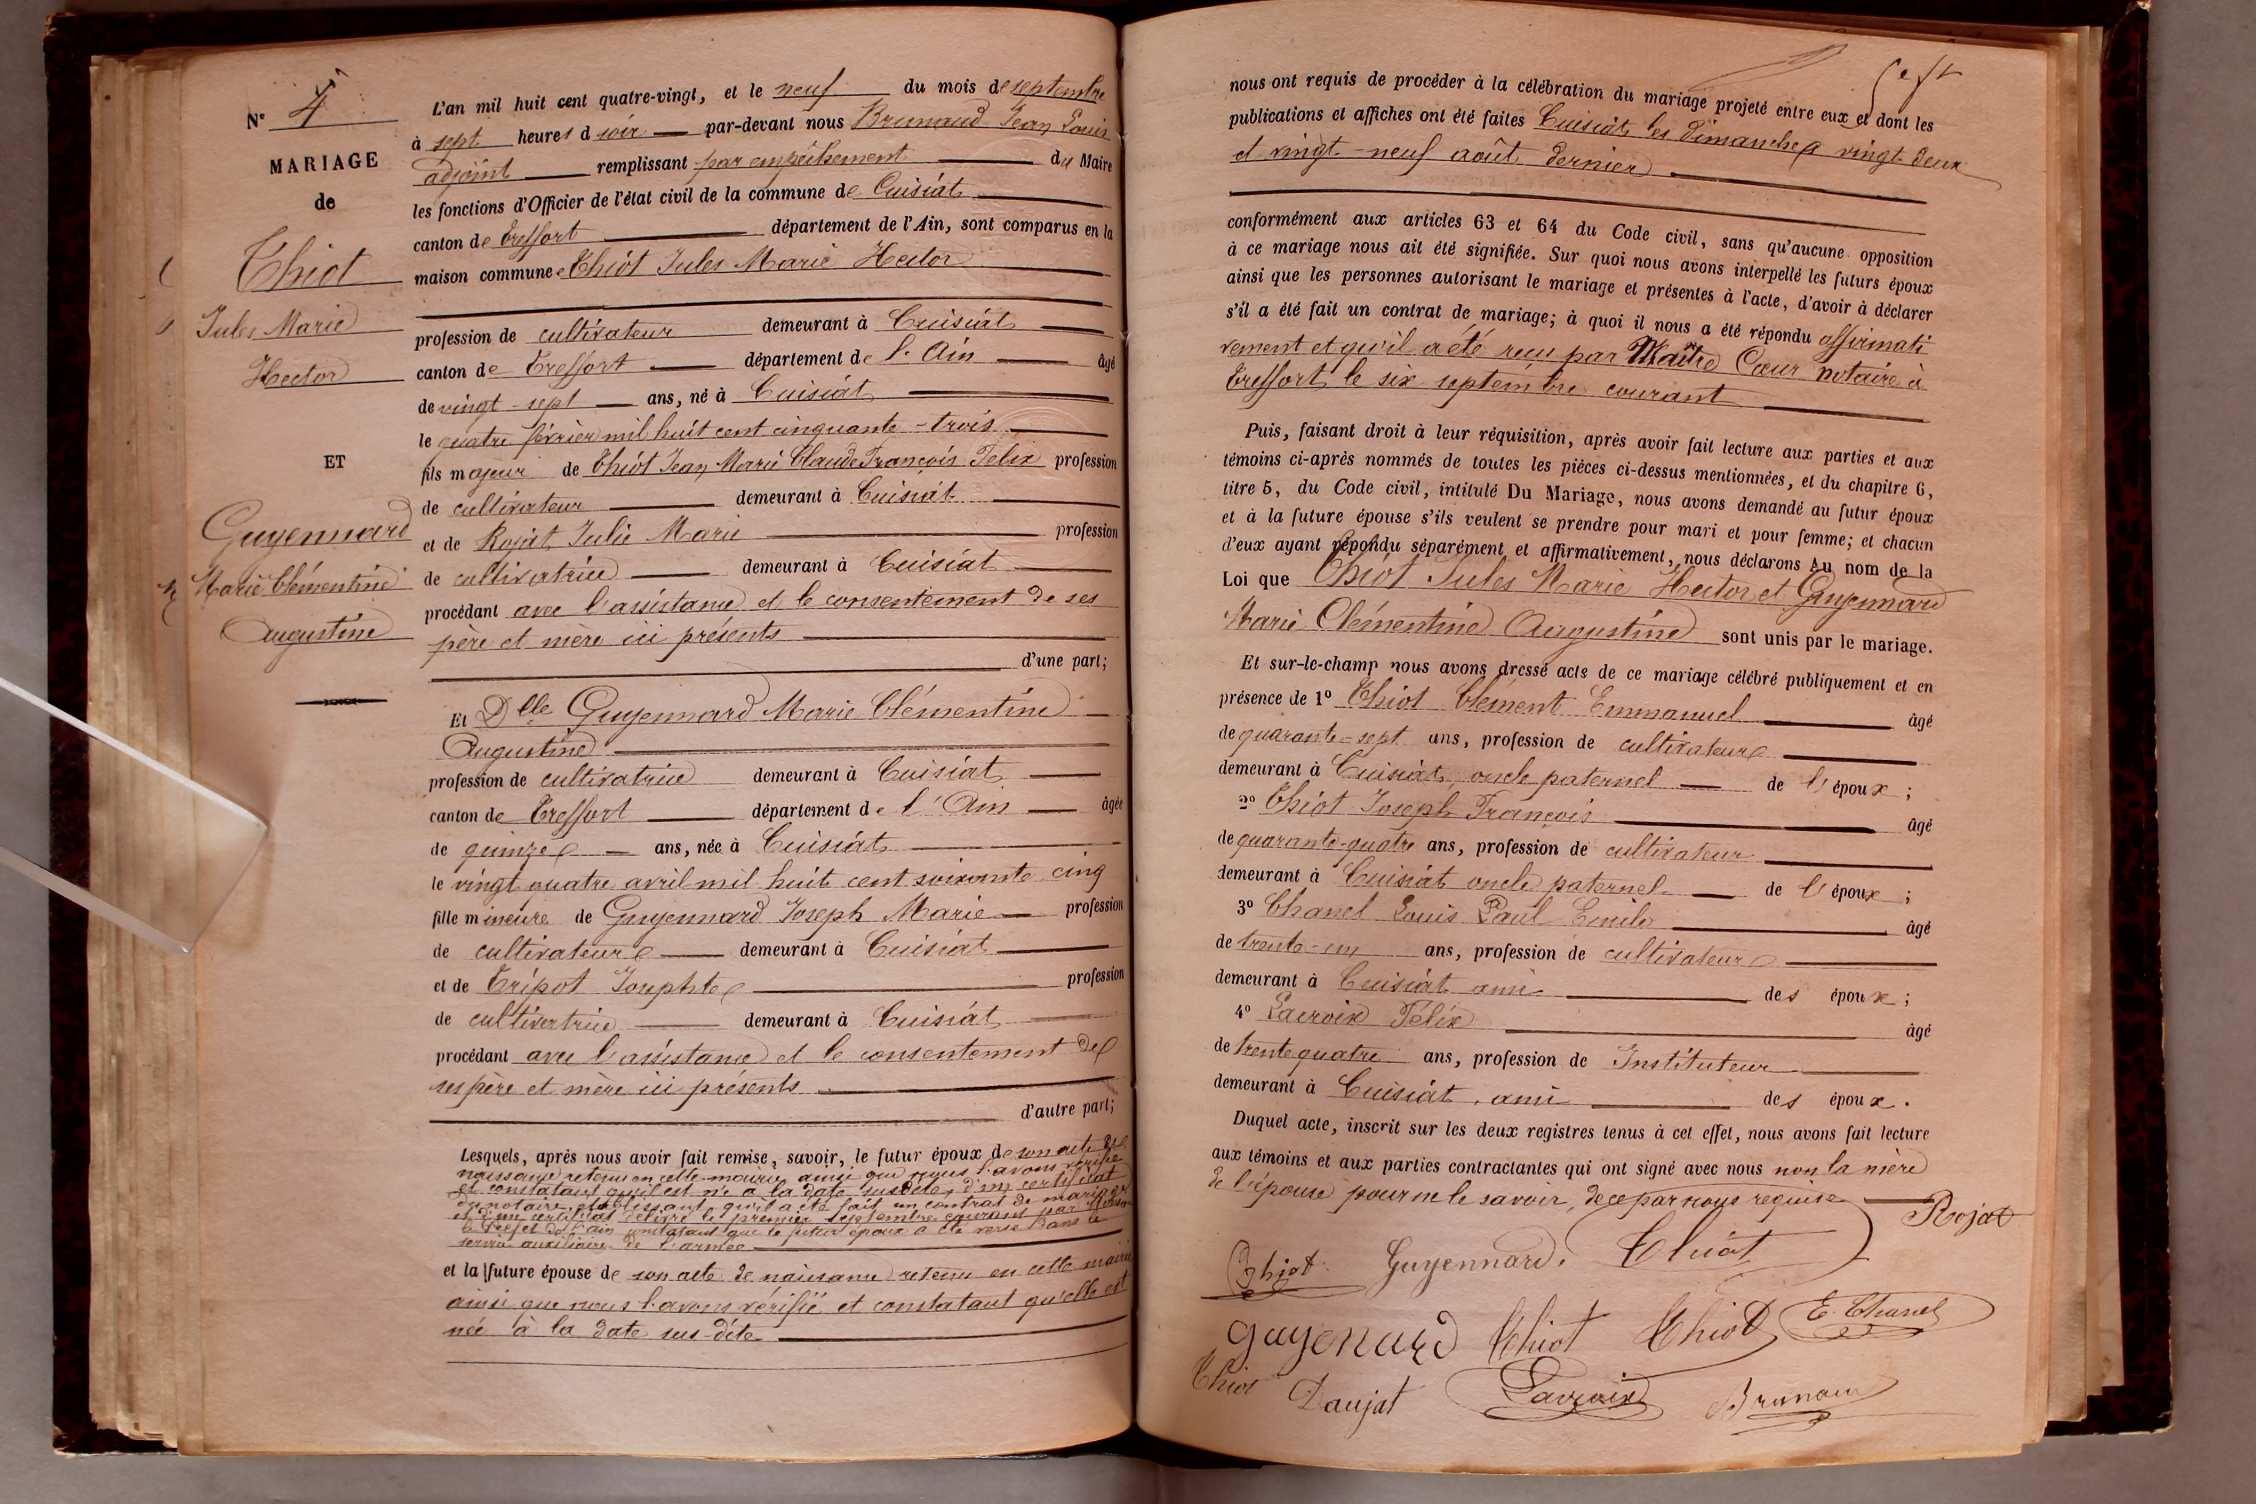 N° 4
MARIAGE
de
Thiot
Jules Marie
Hector
ET
Guyennard
Marie Clémentine
Augustine
L'an mil huit cent quatre-vingt, et le neuf du mois de septembre
à sept heures d soir par-devant nous Brunaud Jean Louis
adjoint remplissant par empêchement du Maire
les fonctions d'Officier de l'état civil de la commune de Cuisiat
canton de Treffort département de l'Ain, sont comparus en la
maison commune Thiot Jules Marie Hector
profession de cultivateur demeurant à Cuisiat
canton de Treffort département de l'Ain âgé
de vingt-sept ans, né à Cuisiat
le quatre février mil huit cent cinquante-trois
fils majeur de Thiot Jean Marie Claude François Felix profession
de cultivateur demeurant à Cuisiat
et de Rojat Julie Marie profession
de cultivatrice demeurant à Cuisiat
procédant avec l'assistance et le consentement de ses
père et mère ici présents
d'une part;
Et Dlle Guyennard Marie Clémentine
Augustine
profession de cultivatrice demeurant à Cuisiat
canton de Treffort département de l'Ain âgée
de quinze ans, née à Cuisiat
le vingt quatre avril mil huit cent soixante cinq
fille mineure de Guyennard Joseph Marie profession
de cultivateur demeurant à Cuisiat
et de Tripot Josephte profession
de cultivertrice demeurant à Cuisiat
procédant avec l'assistance et le consentement de
ses père et mère ici présents
d'autre part;
Lesquels, après nous avoir fait remise, savoir, le futur époux de son acte de
naissance retenu en cette mairie ainsi que nous l'avons vérifié
et constatant qu'il est né à la date susdite, d'un certificat
du notaire établissant qu'il a été fait un contrat de mariage
et d'un certificat délivré le premier septembre courant par
le Préfet de l'Ain constatant que le futur époux a été versé dans le
service auxiliaire de l'armée
et la future épouse de son acte de naissance retenu en cette mairie
ainsi que nous l'avons vérifié et constatant qu'elle est
née à la date sus-dite
nous ont requis de procéder à la célébration du mariage projeté entre eux et dont les
publications et affiches ont été faites Cuisiat les dimanches vingt deux
et vingt-neuf août dernier
conformément aux articles 63 et 64 du Code civil, sans qu'aucune opposition
à ce mariage nous ait été signifiée. Sur quoi nous avons interpellé les futurs époux
ainsi que les personnes autorisant le mariage et présentes à l'acte, d'avoir à déclarer
s'il a été fait un contrat de mariage; à quoi il nous a été répondu affirmati
vement et qu'il a été reçu par Maître Cœur notaire à
Treffort le six septembre courant
Puis, faisant droit à leur réquisition, après avoir fait lecture aux parties et aux
témoins ci-après nommés de toutes les pièces ci-dessus mentionnées, et du chapitre 6,
titre 5, du Code civil, intitulé Du Mariage, nous avons demandé au futur époux
et à la future épouse s'ils veulent se prendre pour mari et pour femme; et chacun
d'eux ayant répondu séparément et affirmativement, nous déclarons Au nom de la
Loi que Thiot Jules Marie Hector et Guyennard
Marie Clémentine Augustine sont unis par le mariage.
Et sur-le-champ nous avons dressé acte de ce mariage célébré publiquement et en
présence de 1° Thiot Clément Emmanuel âgé
de quarante-sept ans, profession de cultivateur
demeurant à Cuisiat, oncle paternel de l'époux;
2° Thiot Joseph François âgé
de quarante-quatre ans, profession de cultivateur
demeurant à Cuisiat oncle paternel de l'époux;
3° Chanel Louis Paul Emile âgé
de trente-un ans, profession de cultivateur
demeurant à Cuisiat ami des époux;
4° Lacroix Félix âgé
de trente quatre ans, profession de Instituteur
demeurant à Cuisiat, ami des époux.
Duquel acte, inscrit sur les deux registres tenus à cet effet, nous avons fait lecture
aux témoins et aux parties contractantes qui ont signé avec nous non la mère
de l'épouse pour ne le savoir, de ce par nous requise
Rojat
Thiot Guyennard. Thiot
guyenard Thiot Thiot E. Chanel
Thiot Daujat Lacroix Brunaud